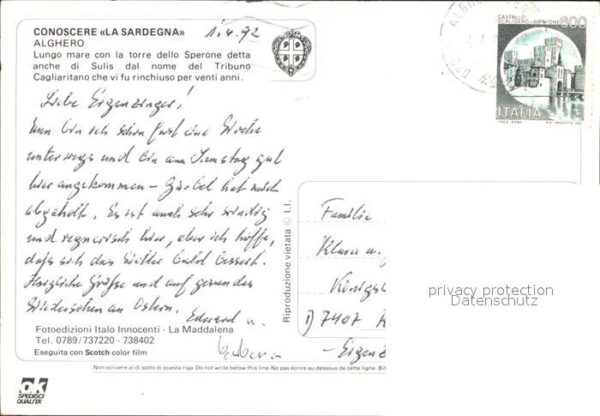 CONOSCERE «LA SARDEGNA» 1.4.92
ALGHERO
Lungo mare con la torre dello Sperone detta
anche di Sulis dal nome del Tribuno
Cagliaritano che vi fu rinchiuso per venti anni.
CASTELLO
SCALIGERO - SIRMIONE 600
ITALIA
Liebe Eizenzinger!
Nun bin ich schon fast eine Woche
unterwegs und bin am Samstag gut
hier angekommen – hat mich
abgeholt. Es ist auch sehr windig
und regnerisch hier, aber ich hoffe,
daß sich das Wetter bald bessert.
Herzliche Grüße und auf gesundes
Wiedersehen an Ostern. Eduard u.
Barbara
Familie
Klaus u.
Königs
D 7407
Riproduzione vietata © I.I.
privacy protection
Datenschutz
Fotoedizioni Italo Innocenti - La Maddalena
Tel. 0789/737220 - 738402
Eseguita con Scotch color film
Non scrivere al di sotto di questa riga - Do not write below this line - Ne pas écrire au dessous de cette ligne - Bit
ok
SPEDISCI
QUALITA'